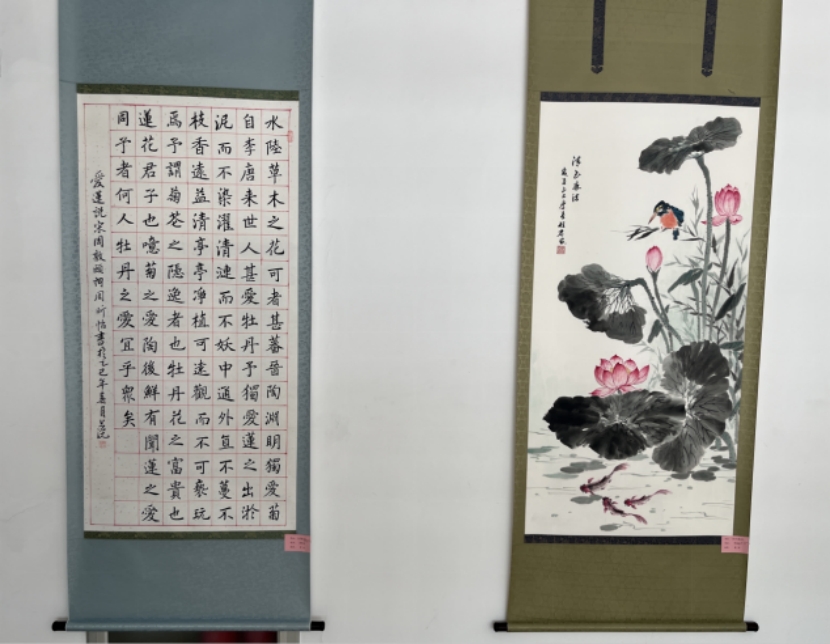 水陸草木之花可者甚蕃晉陶淵明獨愛菊
自李唐来世人甚愛牡丹予獨愛蓮之出淤
泥而不染濯清漣而不妖中通外直不蔓不
枝香遠益清亭亭凈植可遠觀而不可褻玩
焉予謂菊花之隱逸者也牡丹花之富貴也
蓮花君子也噫菊之愛陶後鮮有聞蓮之愛
同予者何人牡丹之愛宜乎眾矣
愛蓮説宋周敦頤書於乙巳年春月